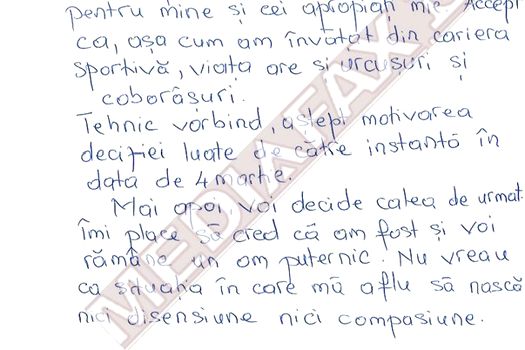 pentru mine și cei apropiați mie. Accept
ca, așa cum am învățat din cariera
sportivă, viața are și urcușuri și
coborâsuri.
Tehnic vorbind, aștept motivarea
deciziei luate de către instanță în
data de 4 martie.
Mai apoi, voi decide calea de urmat.
Îmi place să cred că am fost și voi
rămâne un om puternic. Nu vreau
ca situația în care mă aflu să nască
nici disensiune nici compasiune.
MEDIAFAX